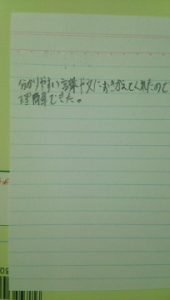 分かりやすい言葉や文におきかえてくれたので
理解できた。